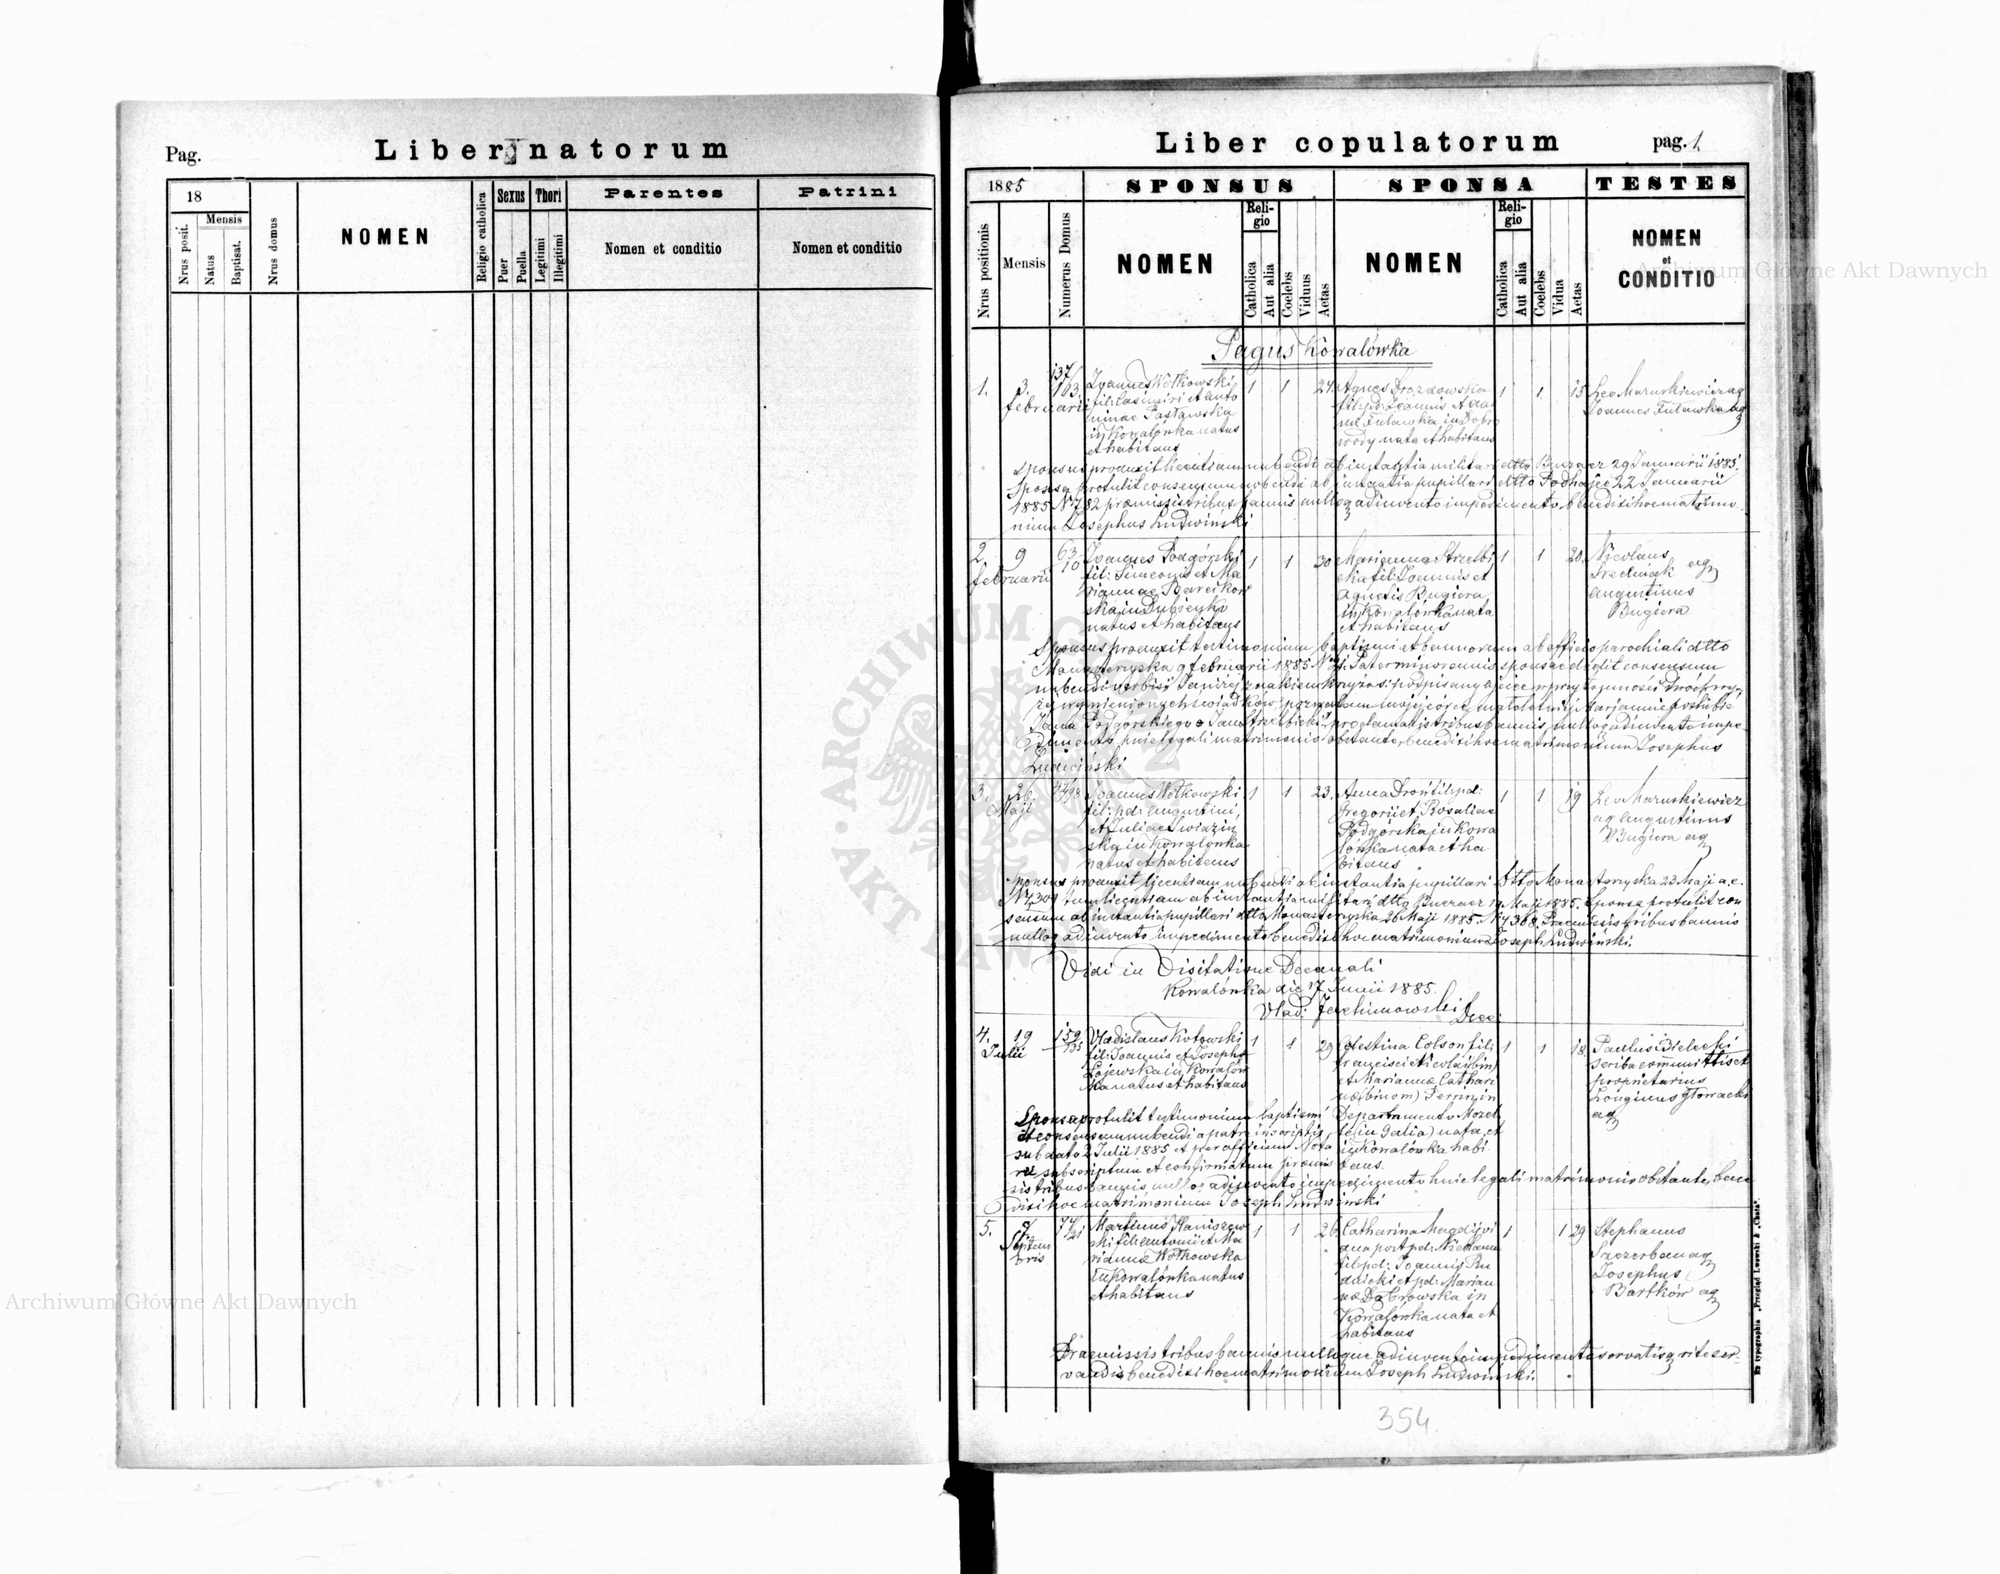 Pag.
Liber natorum
18
Mensis
Nrus posit.
Natus
Baptisat.
Nrus domus
NOMEN
Religio catholica
Sexus
Puer
Puella
Thori
Legitimi
Illegitimi
Parentes
Nomen et conditio
Patrini
Nomen et conditio
Liber copulatorum
pag. 1
1885
SPONSUS
SPONSA
TESTES
Nrus positionis
Mensis
Numerus Domus
NOMEN
Religio
Catholica
Aut alia
Coelebs
Viduus
Aetas
NOMEN
Religio
Catholica
Aut alia
Coelebs
Vidua
Aetas
NOMEN
et
CONDITIO
Pagus Kowalówka
1.
3.
februarii
137/
103
Ioannes Wołkowski
fil: Casimiri et Anto
ninae Pasławska
in Kowalówka natus
et habitans
1
1
24.
Agnes Drozdowska
fil: pd: Joannis et An
nae Tutawka in Dobro
wody nata et habitans
1
1
15
Leo Maruszkiewicz ag
Joannes Tutawka ag
Sponsus produxit licentiam nubendi ab instantia militari dtto Buczacz 29 Januarii 1885.
Sponsa protulit consensum nubendi ab instantia pupillari dtto Podhajce 22 Januarii
1885 N 782 praemissis tribus bannis nulloq adinvento impedimento benedixi hoc matrimo
nium Josephus Ludwiński
2.
9
februarii
63
10
Ioannes Podgórski
fil: Simeonis et Ma
riannae Barcikow
ska in Dubienko
natus et habitans
1
1
30
Marianna Strzelbi
cka fil: Joannis et
Agnetis Bugiera
in Kowalówka nata
et habitans
1
1
20.
Nicolaus
Średniak ag
Augustinus
Bugiera
Sponsus produxit testimonium baptismi et bannorum ab officio parochiali dtto
Monasterzyska 9 februarii 1885 Pater minorennis sponsae dedit consensum
nubendi verbis: Ja niżej znakiem krzyża s: podpisany ojciec w przytomności dwóch
wymienionych świadków, pozwalam mojej córce małoletniej Marjannie poślubić
Jana Podgórskiego Jan Strzelbicki proclamatis tribus bannis nulloq adinvento impe
dimento huic legali matrimonio obstante, benedixi hoc matrimonium Josephus
Ludwiński
3.
26
Maji
Joannes Wołkowski
fil: pd: Augustini,
et Juliae Gwiazdin
ska in Kowalówka
natus et habitans
1
1
23.
Anna Droń fil: pd:
Gregorii et Rosaliae
Podgórska in Kowa
lówka nata et ha
bitans
1
1
19
Leo Maruszkiewicz
ag Augustinus
Bugiera ag
Sponsus produxit licentiam nubendi ab instantia pupillari dtto Monasterzyska 23 Maji a.c.
N 4304 tum licentiam ab instantia militari dtto Buczacz 19 Maji 1885. Sponsa protulit con
sensum ab instantia pupillari dtto Monasterzyska 26 Maji 1885 N 4368. Praemissis tribus bannis
nulloq adinvento impedimento benedixi hoc matrimonium Joseph Ludwiński.
Vidi in Visitatione Decanali
Kowalówka die 17 Junii 1885.
Vlad: Jachimowski Dec:
4.
19
Julii
159
135
Vladislaus Kotowski
fil: Joannis et Josepha
Łojewska in Kowalów
ka natus et habitans
1
1
29
Celestina Colson fil:
Francisci et Nicolai (bin)
et Mariannae Cathari
nae (binom) Perrin, in
Departamento Mozel
le (in Galia) nata, et
in Kowalówka habi
tans.
1
1
18
Paulus Bielecki
scriba communitatis et
proprietarius
Longinus Głowacki
ag
Sponsa protulit testimonium baptismi
et consensum nubendi a patre in scriptis
sub dato 2 Julii 1885 et per officium Nota
re subscriptum et confirmatum praemis
sis tribus bannis nulloq adinvento impedimento huic legali matrimonio obstante, bene
dixi hoc matrimonium Joseph Ludwiński
5.
9/
Septem
bris
77
21
Martinus Staniszew
ski fil: Antonii et Ma
rianna Wołkowska
in Kowalówka natus
et habitans
1
1
26.
Catharina Magdij vi
dua post pd: Nicolaum
fil: pd: Joannis Ru
dnicki et pd: Marian
nae Dąbrowska in
Kowalówka nata et
habitans
1
1
29
Stephanus
Szczerban ag
Josephus
Bartków ag
Praemissis tribus bannis nulloque adinvento impedimento servatisq rite ser-
vandis benedixi hoc matrimonium Joseph Ludwiński.
354
Ex typographia „Przegląd Lwowski & „Chata".
Archiwum Główne Akt Dawnych
Archiwum Główne Akt Dawnych
ARCHIWUM GŁÓWNE AKT DAWNYCH